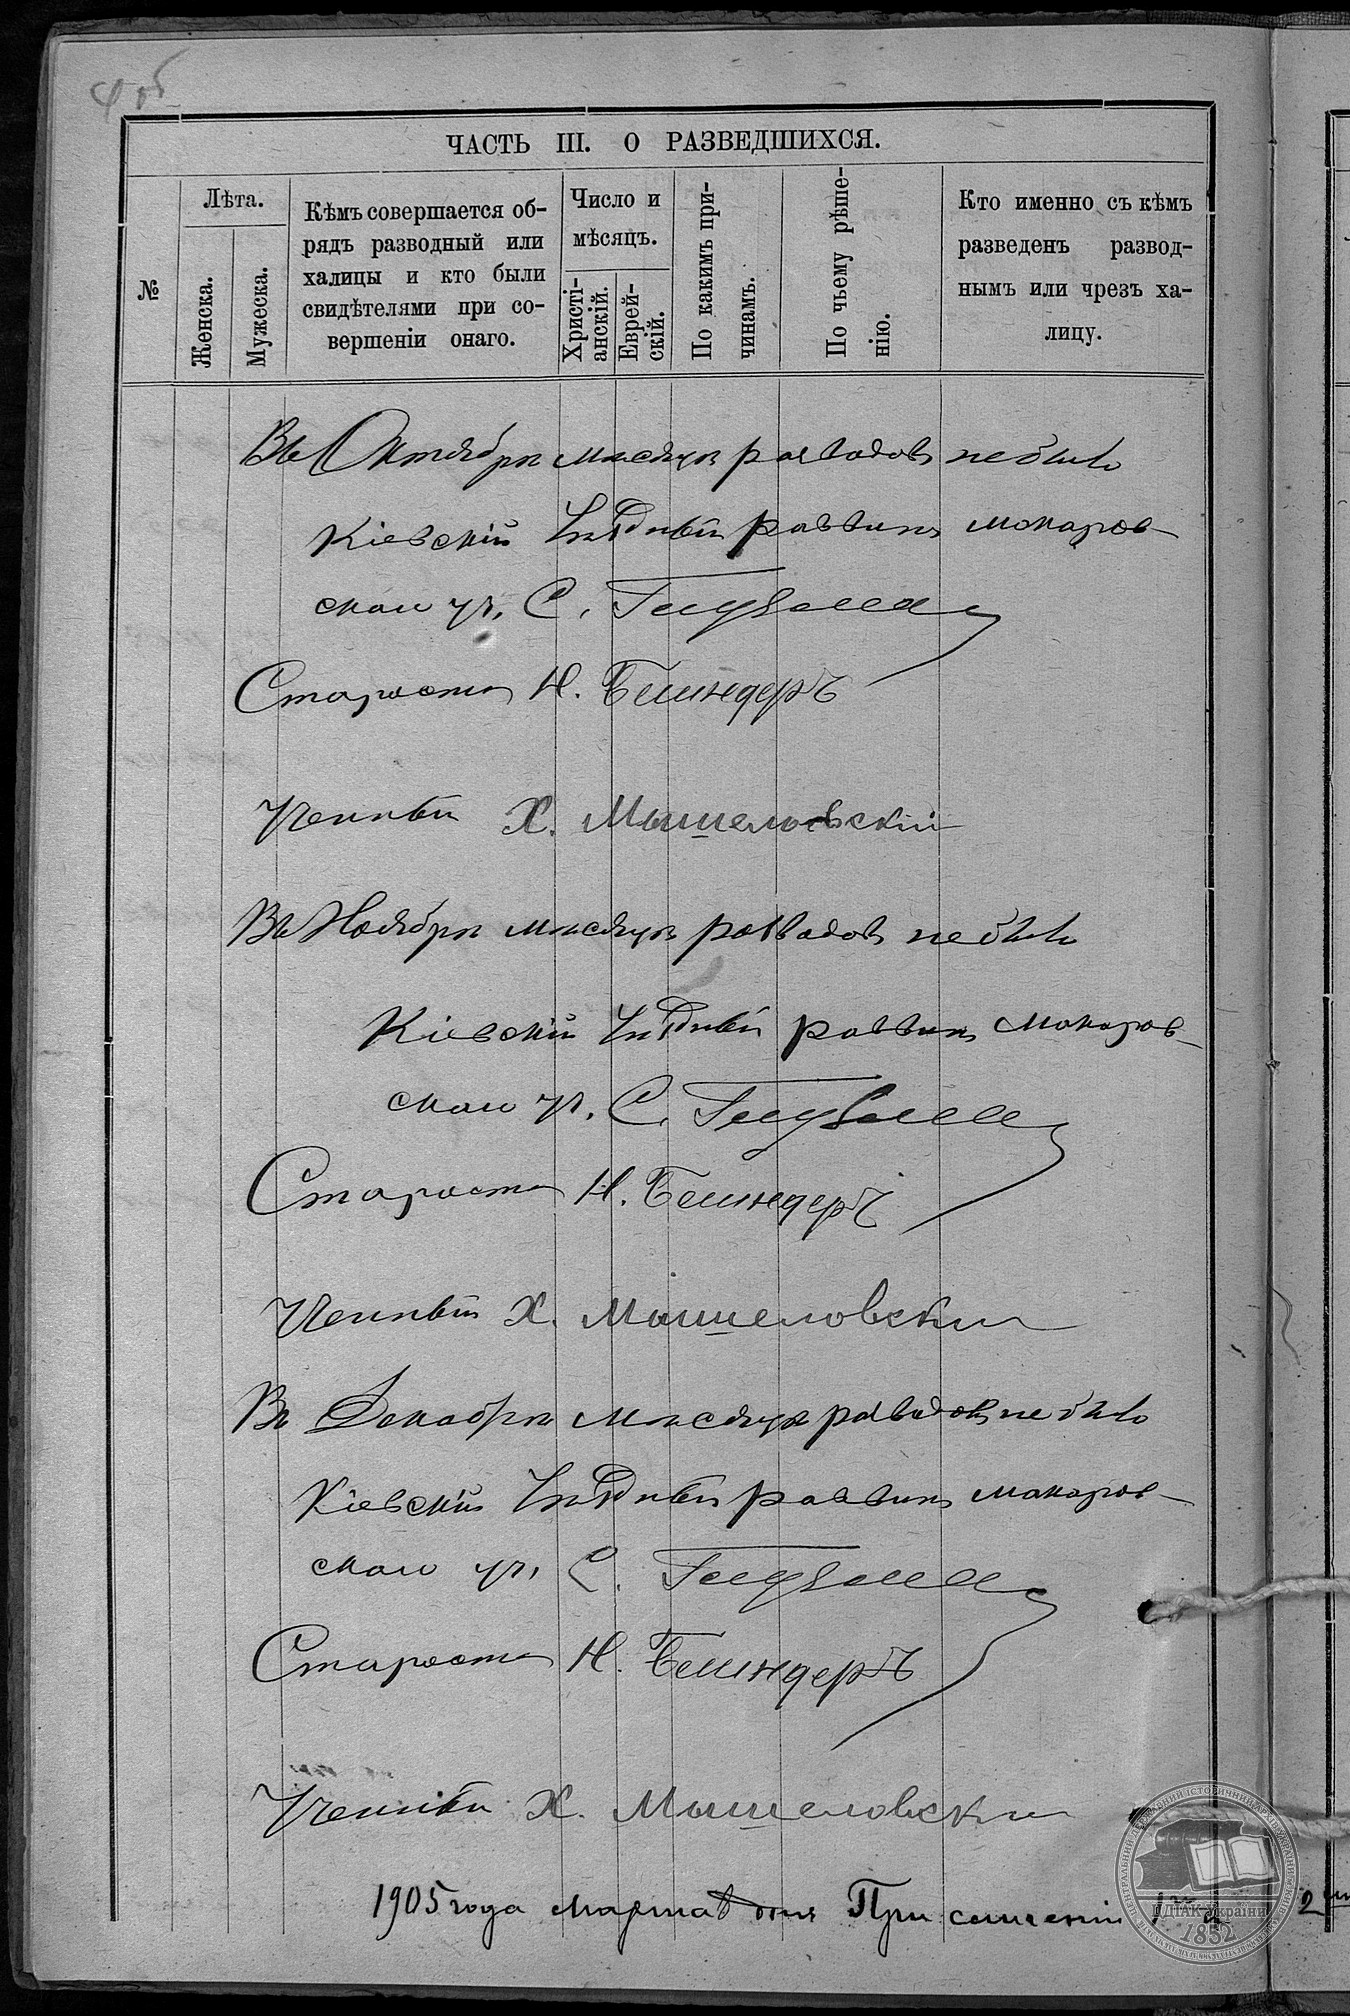 4 об
ЧАСТЬ III. О РАЗВЕДШИХСЯ.
№
Лѣта.
Женска.
Мужеска.
Кѣмъ совершается об-
рядъ разводный или
халицы и кто были
свидѣтелями при со-
вершеніи онаго.
Число и
мѣсяцъ.
Христі-
анскій.
Еврей-
скій.
По какимъ при-
чинамъ.
По чьему рѣше-
нію.
Кто именно съ кѣмъ
разведенъ развод-
нымъ или чрезъ ха-
лицу.
Въ Октябрѣ мѣсяцѣ разводовъ не было
Кіевскій Уѣздный раввинъ Макаров-
скаго уч. С.
Староста Н. Белиндеръ
Ученый Х. Мышеловскій
Въ Ноябрѣ мѣсяцѣ разводовъ не было
Кіевскій Уѣздный раввинъ Макаров-
скаго уч. С.
Староста Н. Белиндеръ
Ученый Х. Мышеловскій
Въ Декабрѣ мѣсяцѣ разводовъ не было
Кіевскій Уѣздный раввинъ Макаров-
скаго уч. С.
Староста Н. Белиндеръ
Ученый Х. Мышеловскій
1905 года Марта дня При сличеніи
ЦДІАК України
1852